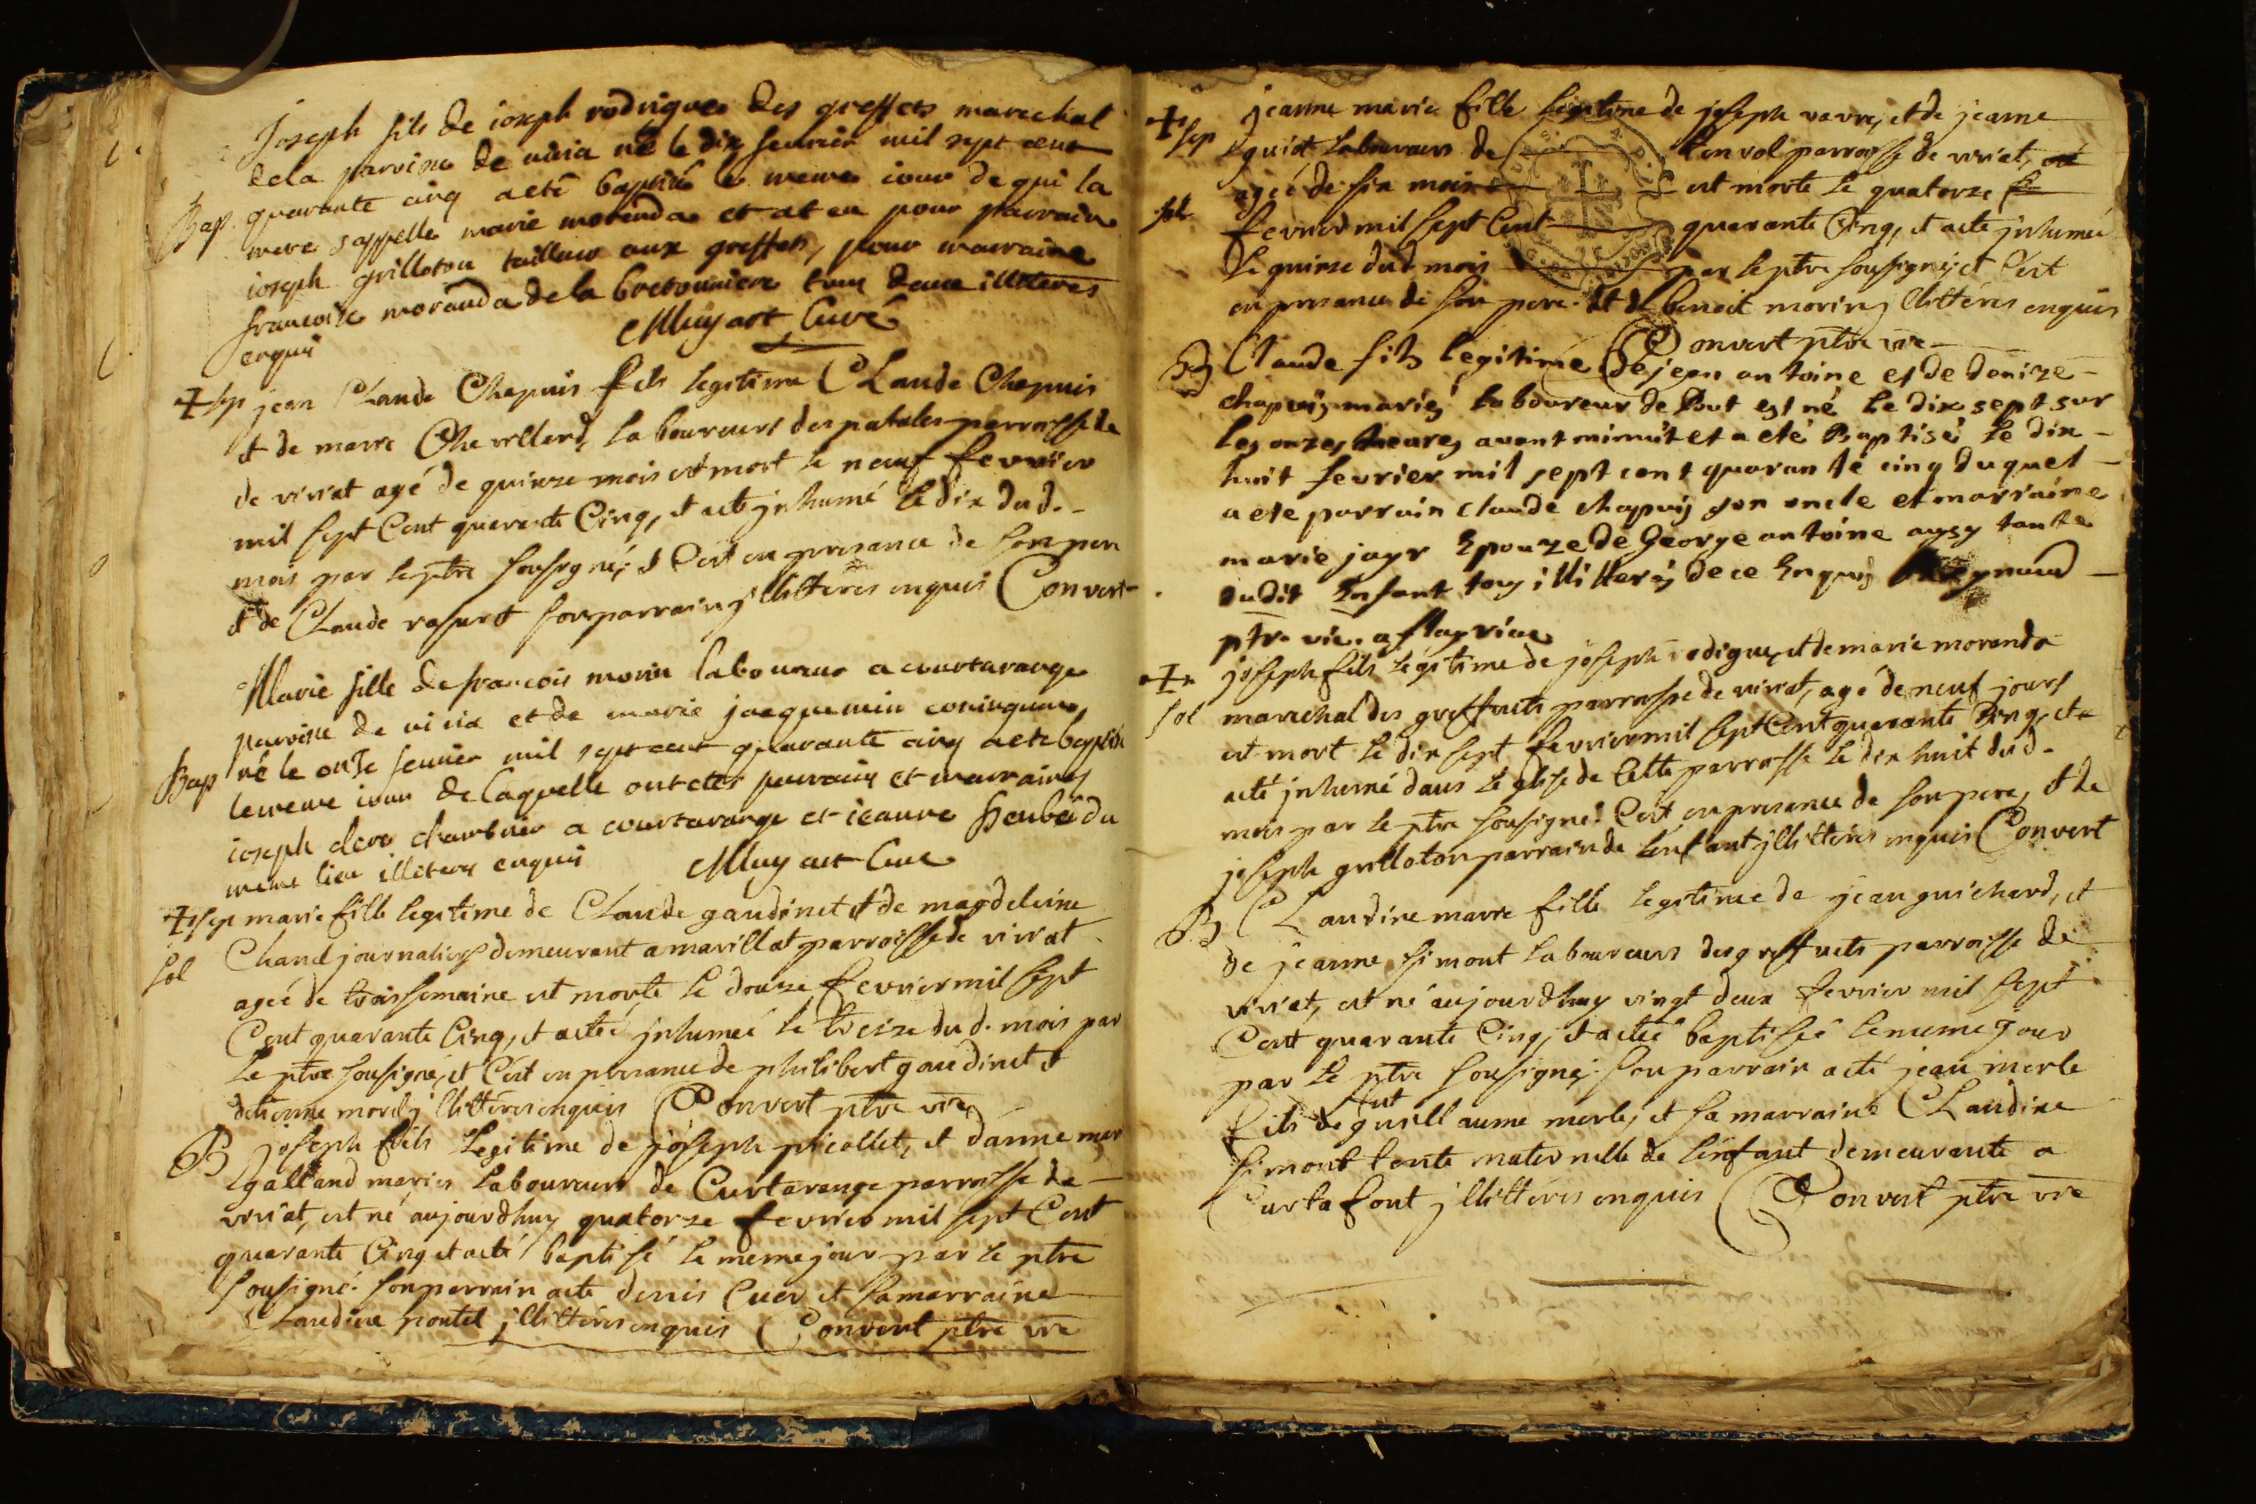 Joseph fils de ioseph rodrigue des greffets marechal
dela paroisse de viria né le dix feurier mil sept cent
Bap quarante cinq a eté baptisé le meme iour de qui la
mere sappelle marie moranda et at eu pour parrain
ioseph grilloton tailleur aux greffets, pour mairaine
francoise moranda de la bretonniere tous deux illiteres
enquis Muyart Curé
sep jean Claude Chapuis fils legitime Claude Chapuis
et de marie Chevillard, laboureurs des patales parroisse de
de viriat agé de quinze mois est mort le neuf fevrier
mil sept Cent quarante Cinq, et aeté jnhumé le dix dud.
mois par le ptre sousigné, et C'est en presance de son pere
et de Claude son parrain jllitterés enquis Convert
Marie fille de francois morin laboureur a courtarange
paroisse de viria et de marie jacquemin
Bap né le onze feurier mil sept cent quarante cinq a eté baptisée
lememe iour de laquelle ont etes parrains et mairaines
ioseph clerc charbuier a courtarange et ieanne du
meme lieu illiteres enquis Muyart Cure
sep marie fille legitime de Claude gaudinet et de magdeleine
sol Chanel journaliers demeurant a marillat parroisse de viriat
ageé de trois semaine est morte le douze fevrier mil sept
Cent quarante Cinq, et aeteé jnhumeé le treize dud. mois par
le ptre sousigné, et C'est en presance de philibert gaudinet et
detienne morel jllitterés enquis Convert ptre vre
B joseph fils legitime de joseph picollet, et d'anne mar
galland mariés laboureurs de Curtarange parroisse de
viriat, est né aujourdhuy quatorze fevrier mil sept Cent
quarante Cinq et aeté baptisé le meme jour par le ptre
sousigné. son parrain aete denis Cuer et sa marraine
Claudine pontel jllitterés enquis Convert ptre vre
sep jeanne marie fille legitime de joseph vavre, et de jeanne
guiot laboureurs de lonvol parroisse de viriat,
ageé de six mois est morte le quatorze
sol fevrier mil sept Cent quarante Cinq, et aeté jnhumeé
le quinze dud mois par le ptre sousigné, et C'est
en presance de son pere et de benoit morin jllitterés enquis
Convert ptre vre
B Claude fils legitime de jean antoine et de denize
chapuis mariés laboureur de Pout est né le dix sept sur
les onzes heures avant minuit et a eté Baptisé le dix
huit fevrier mil sept cent quarante cinq duquel
a eté parrain claude chapuis son oncle et marraine
marie jayr Epouze de George antoine aussy tante
dudit Enfant tous illitterés de ce Enquis
ptre vic.
joseph fils legitime de joseph rodigue, et de marie moranda
sol marechal des greffuets parroisse de viriat, agé de neuf jours
est mort le dix sept fevrier mil sept Cent quarante Cinq, et a
aeté jnhumé dans l'eglise de Cette parroisse le dix huit dud.
mois par le ptre sousigné. C'est en presance de son pere, et de
joseph grilloton parrain de l'enfant jllitterés enquis Convert
B Claudine marie fille legitime de jean guichard, et
de jeanne simont laboureurs des greffuets parroisse de
viriat, est né aujourdhuy vingt deux fevrier mil sept
Cent quarante Cinq, et aeteé baptiseé le meme jour
par le ptre sousigné. son parrain aeté jean merle
fils de fut guillaume merle, et sa marraine Claudine
simont tante maternelle de l'enfant demeurante a
Curtafont jllitterés enquis Convert ptre vre